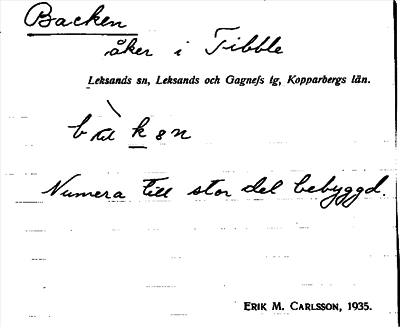 Backen
åker i Tibble
Leksands sn, Leksands och Gagnefs tg, Kopparbergs län.
Numera till stor del bebyggd.
ERIK M. CARLSSON, 1935.